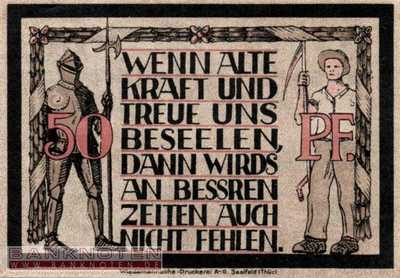 WENN ALTE
KRAFT UND
TREUE UNS
BESEELEN,
DANN WIRDS
AN BESSREN
ZEITEN AUCH
NICHT FEHLEN.
50 PF.
BANKNOTEN
WWW.BANKNOTEN.DE
Wiedemannsche-Druckerei A-G. Saalfeld (Thür.)